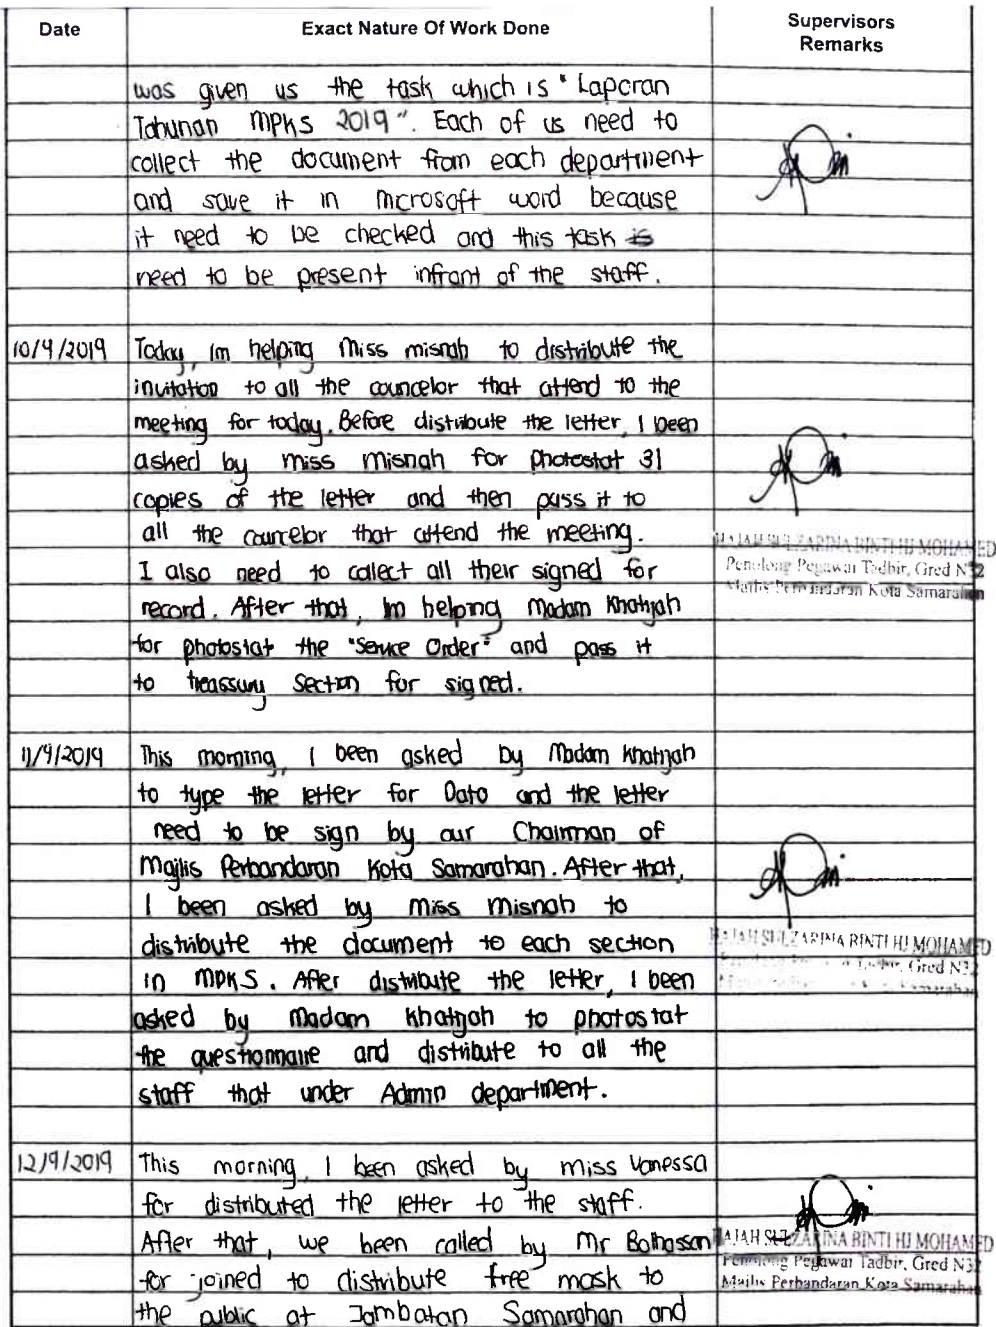 Date
Exact Nature Of Work Done
Supervisors
Remarks
was given us the task which is "Laporan
Tahunan MPKS 2019". Each of us need to
collect the document from each department
and save it in microsoft word because
it need to be checked and this task is
need to be present infront of the staff.
10/9/2019
Today, Im helping Miss misnah to distribute the
invitation to all the councelor that attend to the
meeting for today. Before distribute the letter, I been
asked by miss misnah for photostat 31
copies of the letter and then pass it to
all the councelor that attend the meeting.
I also need to colect all their signed for
record. After that, Im helping Madam Khatijah
for photostat the "Service Order" and pass it
to treassury section for signed.
HAJAH SULZARINA BINTI HJ MOHAMED
Penolong Pegawai Tadbir, Gred N32
Majlis Perbandaran Kota Samarahan
11/9/2019
This morning, I been asked by Madam Khatijah
to type the letter for Dato and the letter
need to be sign by our Chairman of
Majlis Perbandaran Kota Samarahan. After that,
I been asked by miss misnah to
distribute the document to each section
in MPKS. After distribute the letter, I been
asked by Madam Khatijah to photostat
the questionnaire and distribute to all the
staff that under Admin department.
HAJAH SULZARINA BINTI HJ MOHAMED
Tadbir, Gred N32
Samarahan
12/9/2019
This morning, I been asked by miss Vanessa
for distributed the letter to the staff.
After that, we been called by Mr Bolhassan
for joined to distribute free mask to
the public at Jambatan Samarahan and
HAJAH SULZARINA BINTI HJ MOHAMED
Penolong Pegawai Tadbir, Gred N32
Majlis Perbandaran Kota Samarahan